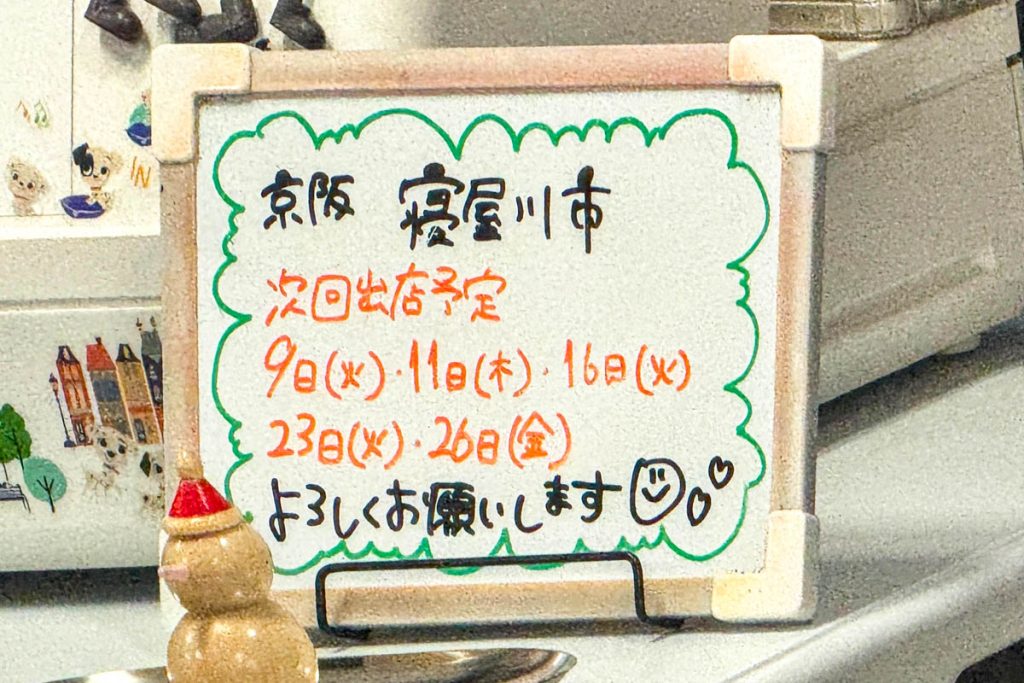 京阪 寝屋川市
次回出店予定
9日(火)・11日(木)・16日(火)
23日(火)・26日(金)
よろしくお願いします
IN